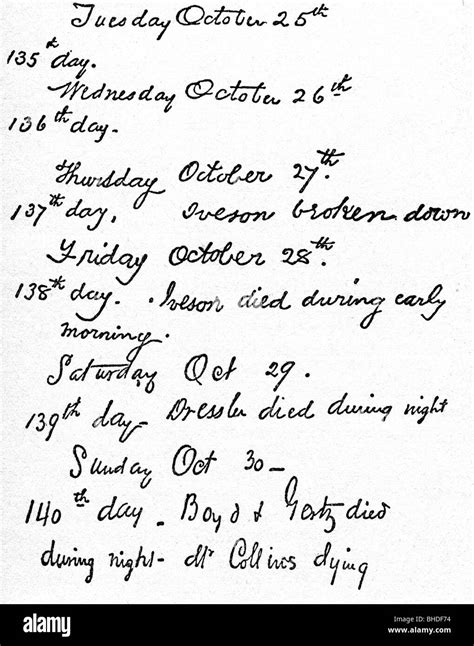 Tuesday October 25th
135th day.
Wednesday October 26th
136th day.
Thursday October 27th.
137th day, Iveson broken down
Friday October 28th.
138th day. Iveson died during early
morning.
Saturday Oct 29.
139th day - Dressler died during night
Sunday Oct 30 -
140th day - Boyd & Gortz died
during night - Mr Collins dying
alamy
Image ID: BHDF74
www.alamy.com